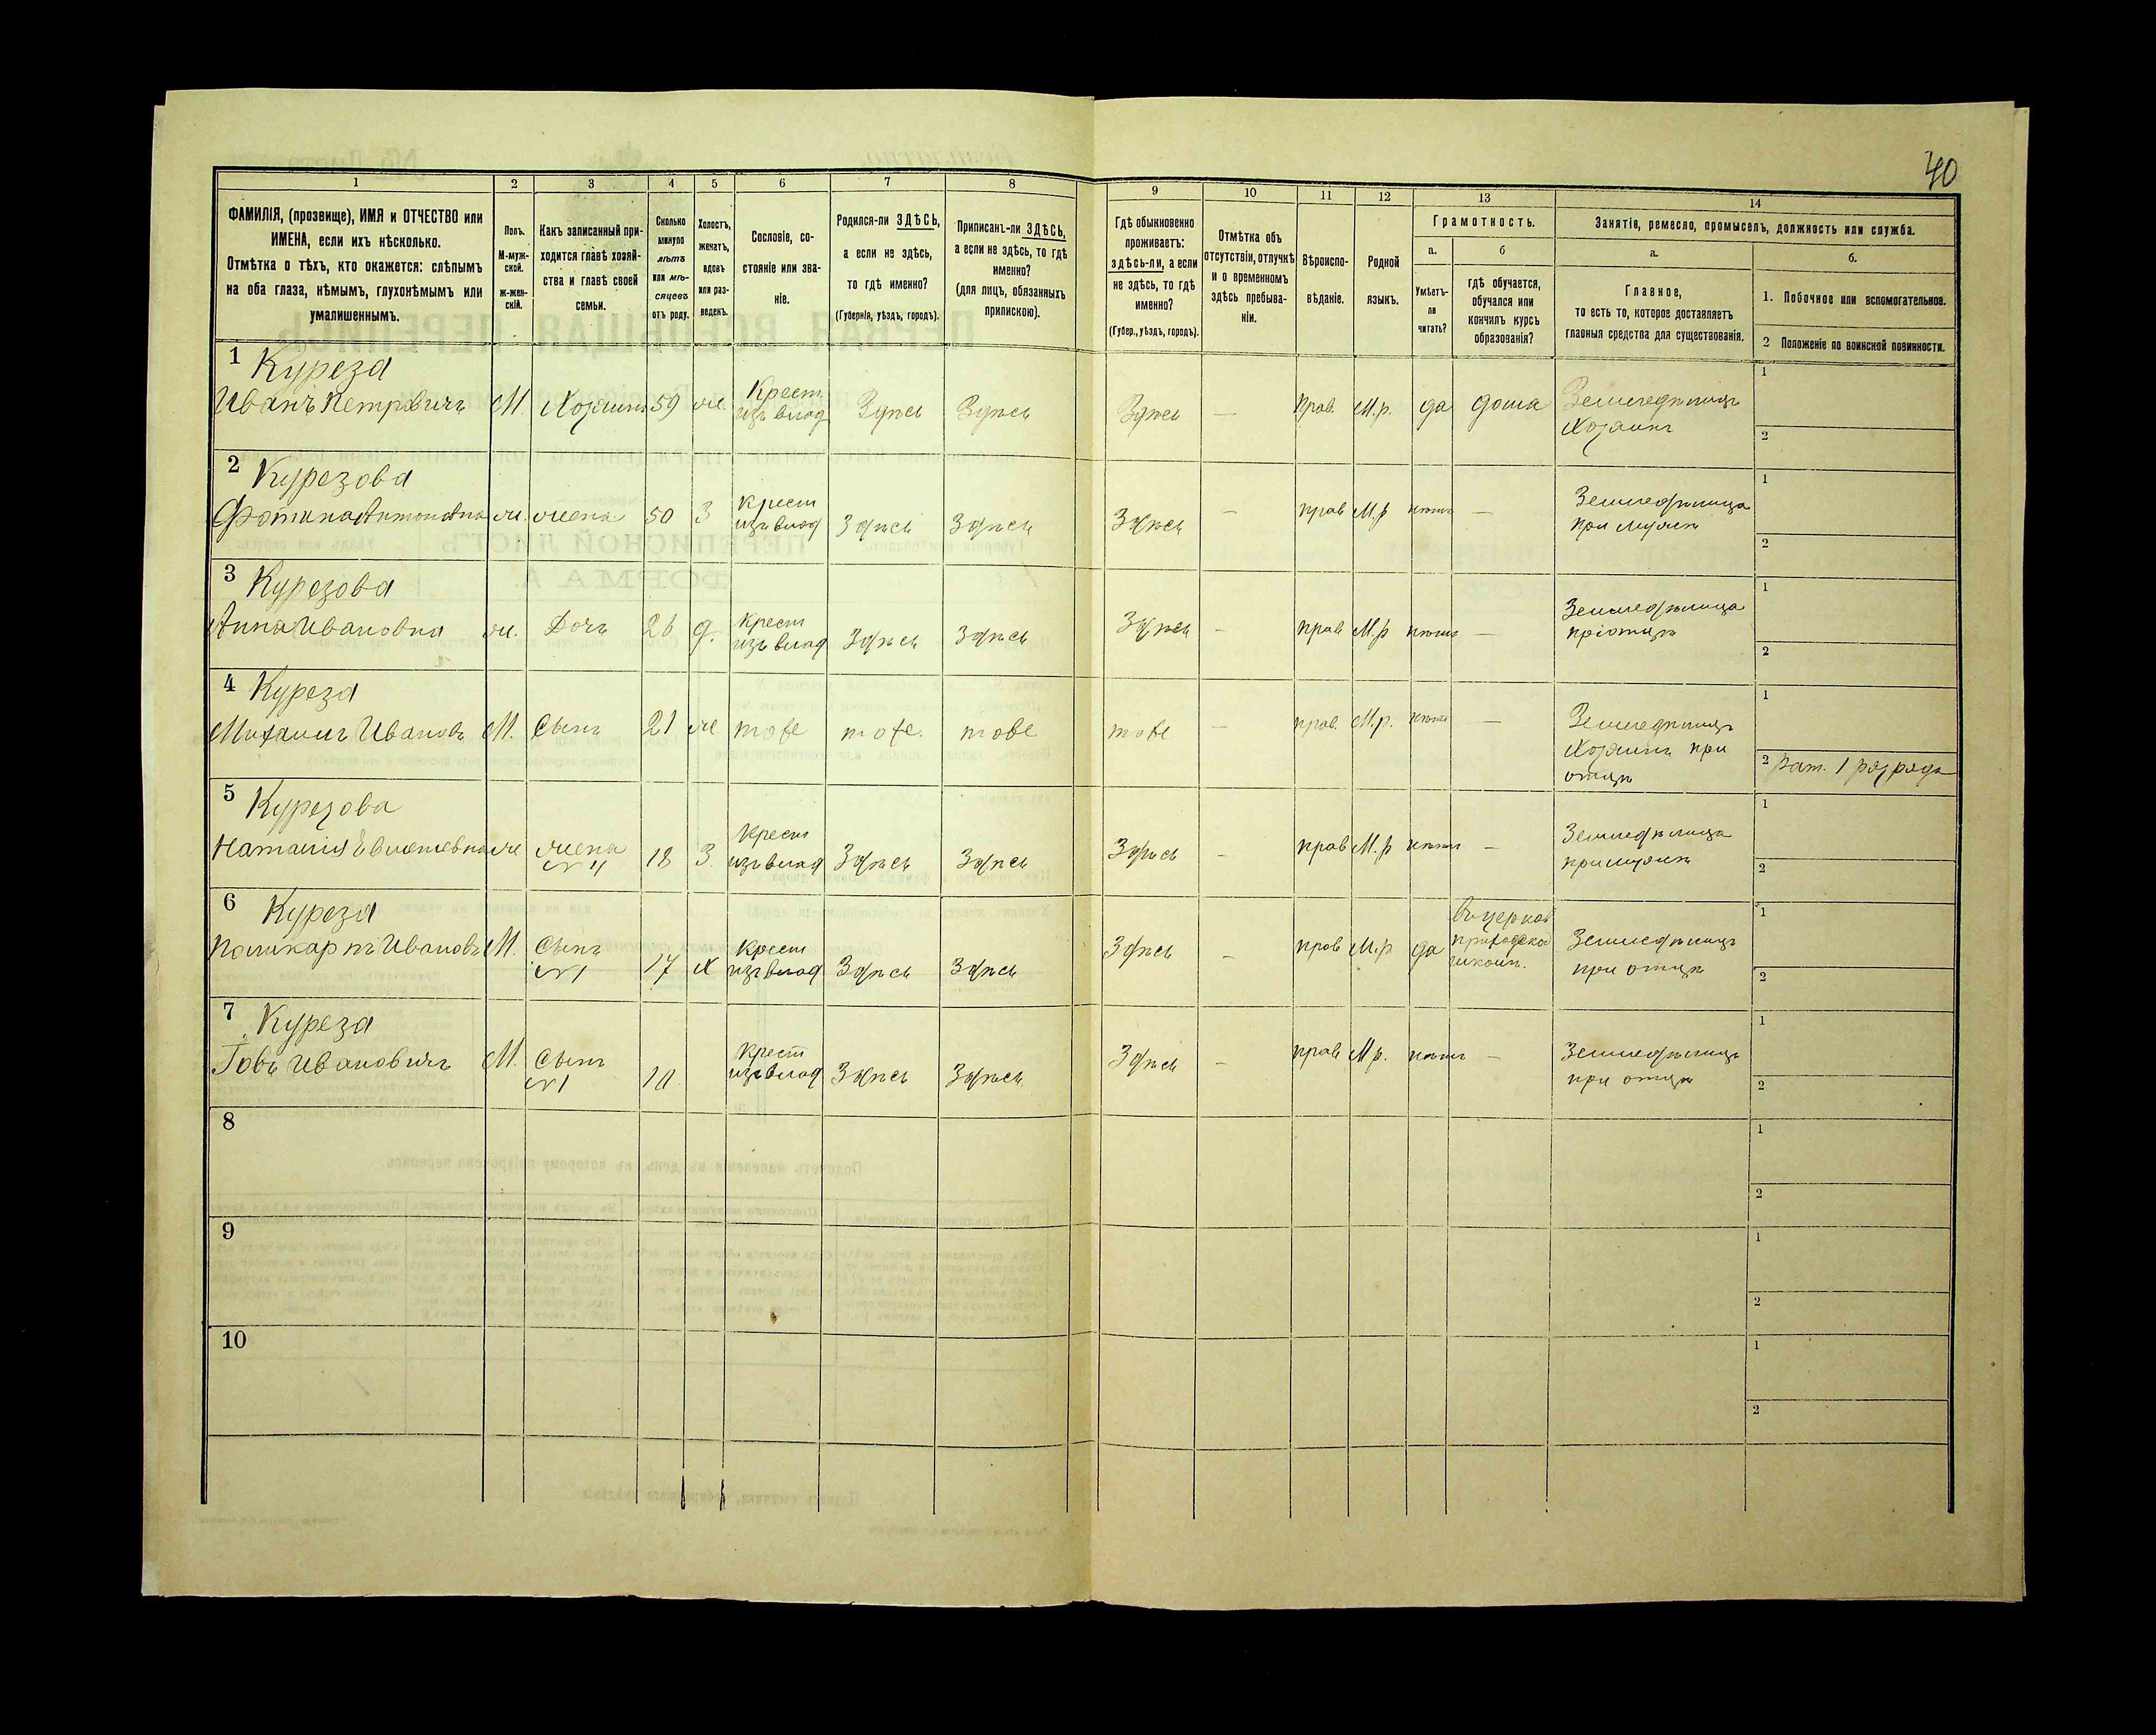 40
1
2
3
4
5
6
7
8
9
10
11
12
13
14
ФАМИЛІЯ, (прозвище), ИМЯ и ОТЧЕСТВО или
ИМЕНА, если ихъ нѣсколько.
Отмѣтка о тѣхъ, кто окажется: слѣпымъ
на оба глаза, нѣмымъ, глухонѣмымъ или
умалишеннымъ.
Полъ.
М-муж-
ской.
ж-жен-
скій.
Какъ записанный при-
ходится главѣ хозяй-
ства и главѣ своей
семьи.
Сколько
минуло
лѣтъ
или мѣ-
сяцевъ
отъ роду.
Холостъ,
женатъ,
вдовъ
или раз-
веденъ.
Сословіе, со-
стояніе или зва-
ніе.
Родился-ли ЗДѢСЬ,
а если не здѣсь,
то гдѣ именно?
(Губернія, уѣздъ, городъ).
Приписанъ-ли ЗДѢСЬ,
а если не здѣсь, то гдѣ
именно?
(для лицъ, обязанныхъ
припискою).
Гдѣ обыкновенно
проживаетъ:
здѣсь-ли, а если
не здѣсь, то гдѣ
именно?
(Губер., уѣздъ, городъ).
Отмѣтка объ
отсутствіи, отлучкѣ
и о временномъ
здѣсь пребыва-
ніи.
Вѣроиспо-
вѣданіе.
Родной
языкъ.
Грамотность.
а.
Умѣетъ-
ли
читать?
б
гдѣ обучается,
обучался или
кончилъ курсъ
образованія?
Занятіе, ремесло, промыселъ, должность или служба.
а.
Главное,
то есть то, которое доставляетъ
главныя средства для существованія.
б.
1. Побочное или вспомогательное.
2 Положеніе по воинской повинности.
1 Куреза
Иванъ Петровичъ М. Хозяинъ 59 ж. Крест. изъ влад Здѣсь Здѣсь Здѣсь — Прав. М.р. да дома Земледѣлецъ
Хозяинъ
1
2
2 Курезова
Фотина Антоновна ж. жена 50 З Крест изъ влад Здѣсь Здѣсь Здѣсь — прав М.р нѣтъ — Земледѣлица
при мужѣ
1
2
3 Курезова
Анна Ивановна ж. Дочь 26 д. Крест изъ влад Здѣсь Здѣсь Здѣсь — прав М.р нѣтъ — Земледѣлица
при отцѣ
1
2
4 Куреза
Михаилъ Ивановъ М. Сынъ 21 ж тоже тоже. тоже тоже — прав. М.р. нѣтъ — Земледѣлецъ
Хозяинъ при
отцѣ
1
2 рат. 1 разряда
5 Курезова
Наталія ж жена
№ 4 18 З. Крест изъ влад Здѣсь Здѣсь Здѣсь — прав М.р нѣтъ — Земледѣлица
при мужѣ
1
2
6 Куреза
Поликарпъ Ивановъ М. Сынъ
№ 1 17 х Крест изъ влад Здѣсь Здѣсь Здѣсь — прав М.р да въ церков
приходской
школѣ. Земледѣлецъ
при отцѣ
1
2
7 Куреза
Іовъ Ивановичъ М. Сынъ
№ 1 Крест изъ влад Здѣсь Здѣсь Здѣсь — прав М.р. нѣтъ — Земледѣлецъ
при отцѣ
1
2
8
1
2
9
1
2
10
1
2